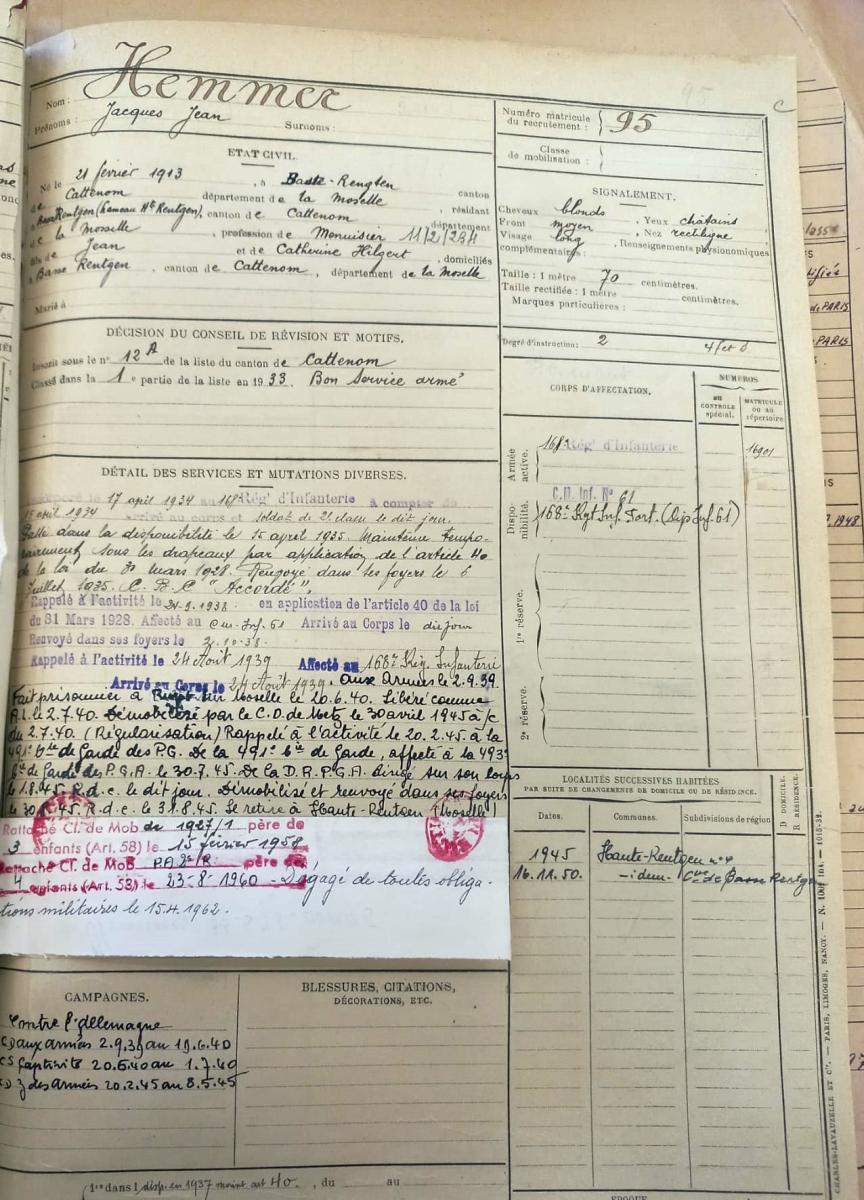 Nom : Hemmer
Prénoms : Jacques Jean Surnoms :
ETAT CIVIL.
Né le 21 février 1913, à Basse-Rengten
de Cattenom département de la Moselle canton
à Basse Rentgen (hameau Hte Rentgen), canton de Cattenom résidant
de la Moselle, profession de Menuisier 11/2/234 département
fils de Jean et de Catherine Hilgert, domiciliés
à Basse Rentgen, canton de Cattenom, département de la Moselle
Marié à
DÉCISION DU CONSEIL DE RÉVISION ET MOTIFS.
Inscrit sous le n° 12 A de la liste du canton de Cattenom
Classé dans la 1e partie de la liste en 1933. Bon service armé
DÉTAIL DES SERVICES ET MUTATIONS DIVERSES.
Incorporé le 17 avril 1934 au 168e Rég' d'Infanterie à compter de
15 avril 1934 Arrivé au corps et soldat de 2e classe le dit jour.
Passé dans la disponibilité le 15 avril 1935. Maintenu tempo-
rairement sous les drapeaux par application de l'article 40
de la loi du 31 mars 1928. Renvoyé dans ses foyers le 6
Juillet 1935. C.B.C "Accordé".
Rappelé à l'activité le 24-9-1938. en application de l'article 40 de la loi
du 31 Mars 1928. Affecté au Cm. Inf. 61 Arrivé au Corps le dit jour
Renvoyé dans ses foyers le 2.10.38.
Rappelé à l'activité le 24 Août 1939 Affecté au 168e Rég. Infanterie
Arrivé au Corps le 24 Août 1939. Aux Armées le 2.9.39.
Fait prisonnier à sur Moselle le 20.6.40. Libéré comme
A.L. le 2.7.40. Démobilisé par le C.D. de Metz le 30 avril 1945 à/c
du 2.7.40. (Régularisation) Rappelé à l'activité le 20.2.45 à la
491e Cie de Garde des P.G. De la 491e Cie de Garde, affecté à la 493e
Cie de Garde des P.G.A. le 30.7.45. De la D.R.P.G.A. dirigé sur son corps
le 1.8.45. R.d.c. le dit jour. Démobilisé et renvoyé dans ses foyers
le 30.8.45. R.d.c. le 31.8.45. Se retire à Haute-Rentgen (Moselle)
Rattaché Cl. de Mob de 1927/1 père de
3 enfants (Art. 58) le 15 février 1958
Rattaché Cl. de Mob PA 2e/R père de
4 enfants (Art. 58) le 23-8-1960 - Dégagé de toutes obliga-
tions militaires le 15.4.1962.
CAMPAGNES.
Contre l'Allemagne
CD aux armées 2.9.39 au 19.6.40
CS Captivité 20.6.40 au 1.7.40
CD Z des armées 20.2.45 au 8.5.45
BLESSURES, CITATIONS,
DÉCORATIONS, ETC.
(1re dans l disp. en 1937 moins art 40., du au
95
C
Numéro matricule
du recrutement : 95
Classe
de mobilisation :
SIGNALEMENT.
Cheveux blonds, Yeux châtains
Front moyen, Nez rectiligne
Visage long, Renseignements physionomiques
complémentaires :
Taille : 1 mètre 70 centimètres.
Taille rectifiée : 1 mètre centimètres.
Marques particulières :
Degré d'instruction : 2
CORPS D'AFFECTATION.
NUMÉROS
AU CONTROLE SPÉCIAL.
MATRICULE OU AU RÉPERTOIRE
Armée active.
168e Rég' d'Infanterie 16901
Disponibilité.
C.M. Inf. N° 61
168e Rgt Inf. Fort. (Dép Inf. 61)
1re réserve.
2e réserve.
LOCALITÉS SUCCESSIVES HABITÉES
PAR SUITE DE CHANGEMENTS DE DOMICILE OU DE RÉSIDENCE.
D DOMICILE.
R RÉSIDENCE.
Dates. Communes. Subdivisions de région
1945 Haute-Rentgen n° 4
16.11.50. -idem- Cne de Basse Rentgen
CHARLES-LAVAUZELLE ET Cie. — PARIS, LIMOGES, NANCY.
de PARIS
PARIS
1948